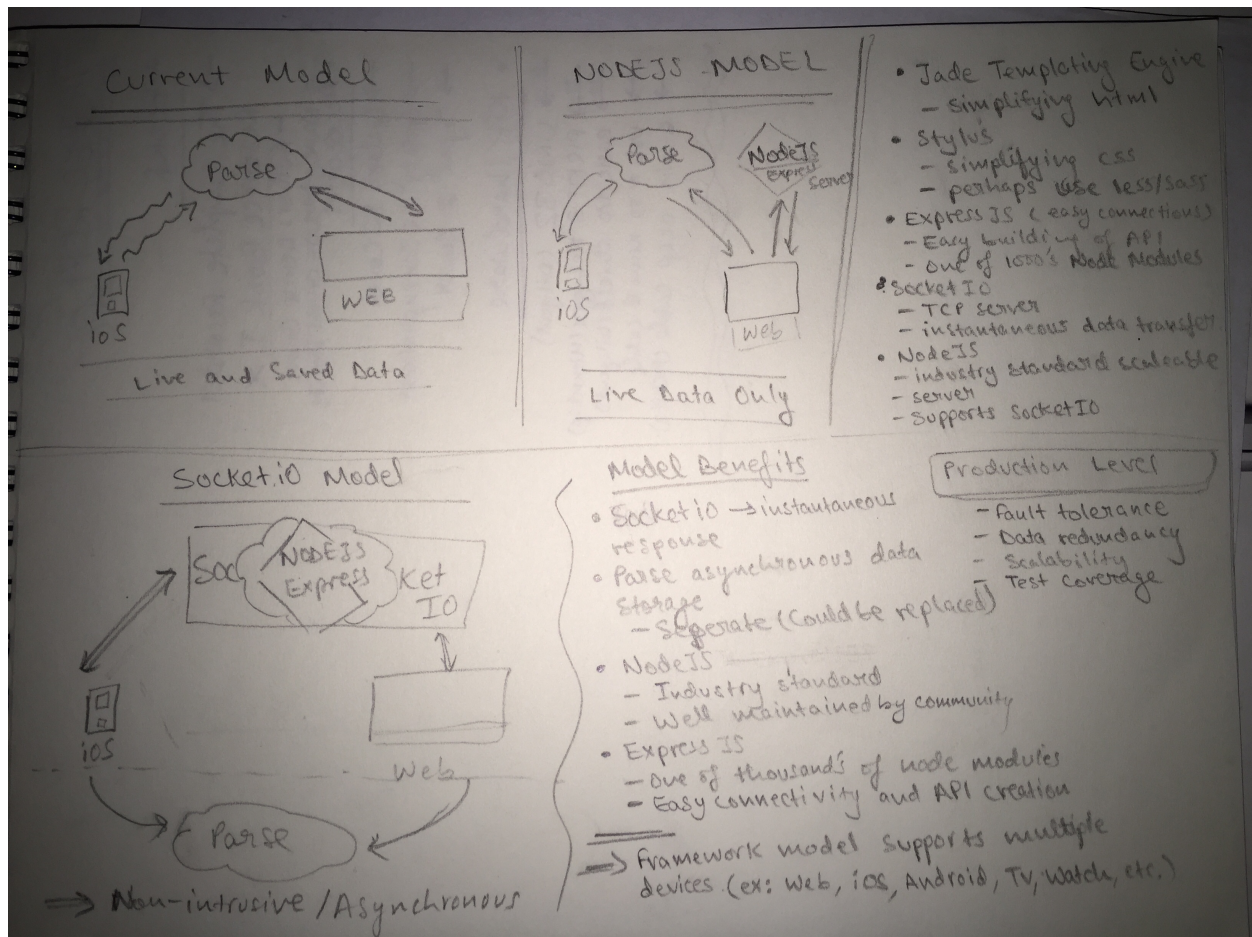 Current Model
Parse
iOS
WEB
Live and Saved Data
NODEJS MODEL
Parse
NodeJS
Express
Server
iOS
Web
Live Data Only
• Jade Templating Engine
- Simplifying html
• Stylus
- Simplifying CSS
- perhaps use less/sass
• Express JS (easy connections)
- Easy building of API
- One of 1000's Node Modules
• Socket IO
- TCP server
- instantaneous data transfer
• NodeJS
- industry standard scaleable
- server
- Supports SocketIO
Socket.iO Model
Soc NODEJS Ket
Express IO
iOS
Web
Parse
⇒ Non-intrusive / Asynchronous
Model Benefits
• Socket iO → instantaneous
response
• Parse asynchronous data
storage
- Seperate (Could be replaced)
• NodeJS
- Industry standard
- Well maintained by community
• Express JS
- One of thousand's of node modules
- Easy connectivity and API creation
⇒ Framework model supports multiple
devices (ex: Web, iOS, Android, TV, Watch, etc.)
Production Level
- Fault tolerance
- Data redundancy
- Scalability
- Test Coverage